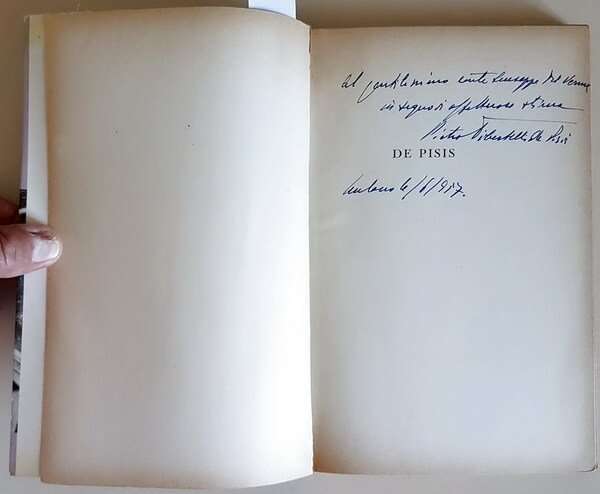 Al gentilissimo conte Giuseppe Del
in segno di affettuosa stima
Pietro Tibertelli De Pisis
DE PISIS
Milano 6/6/957.